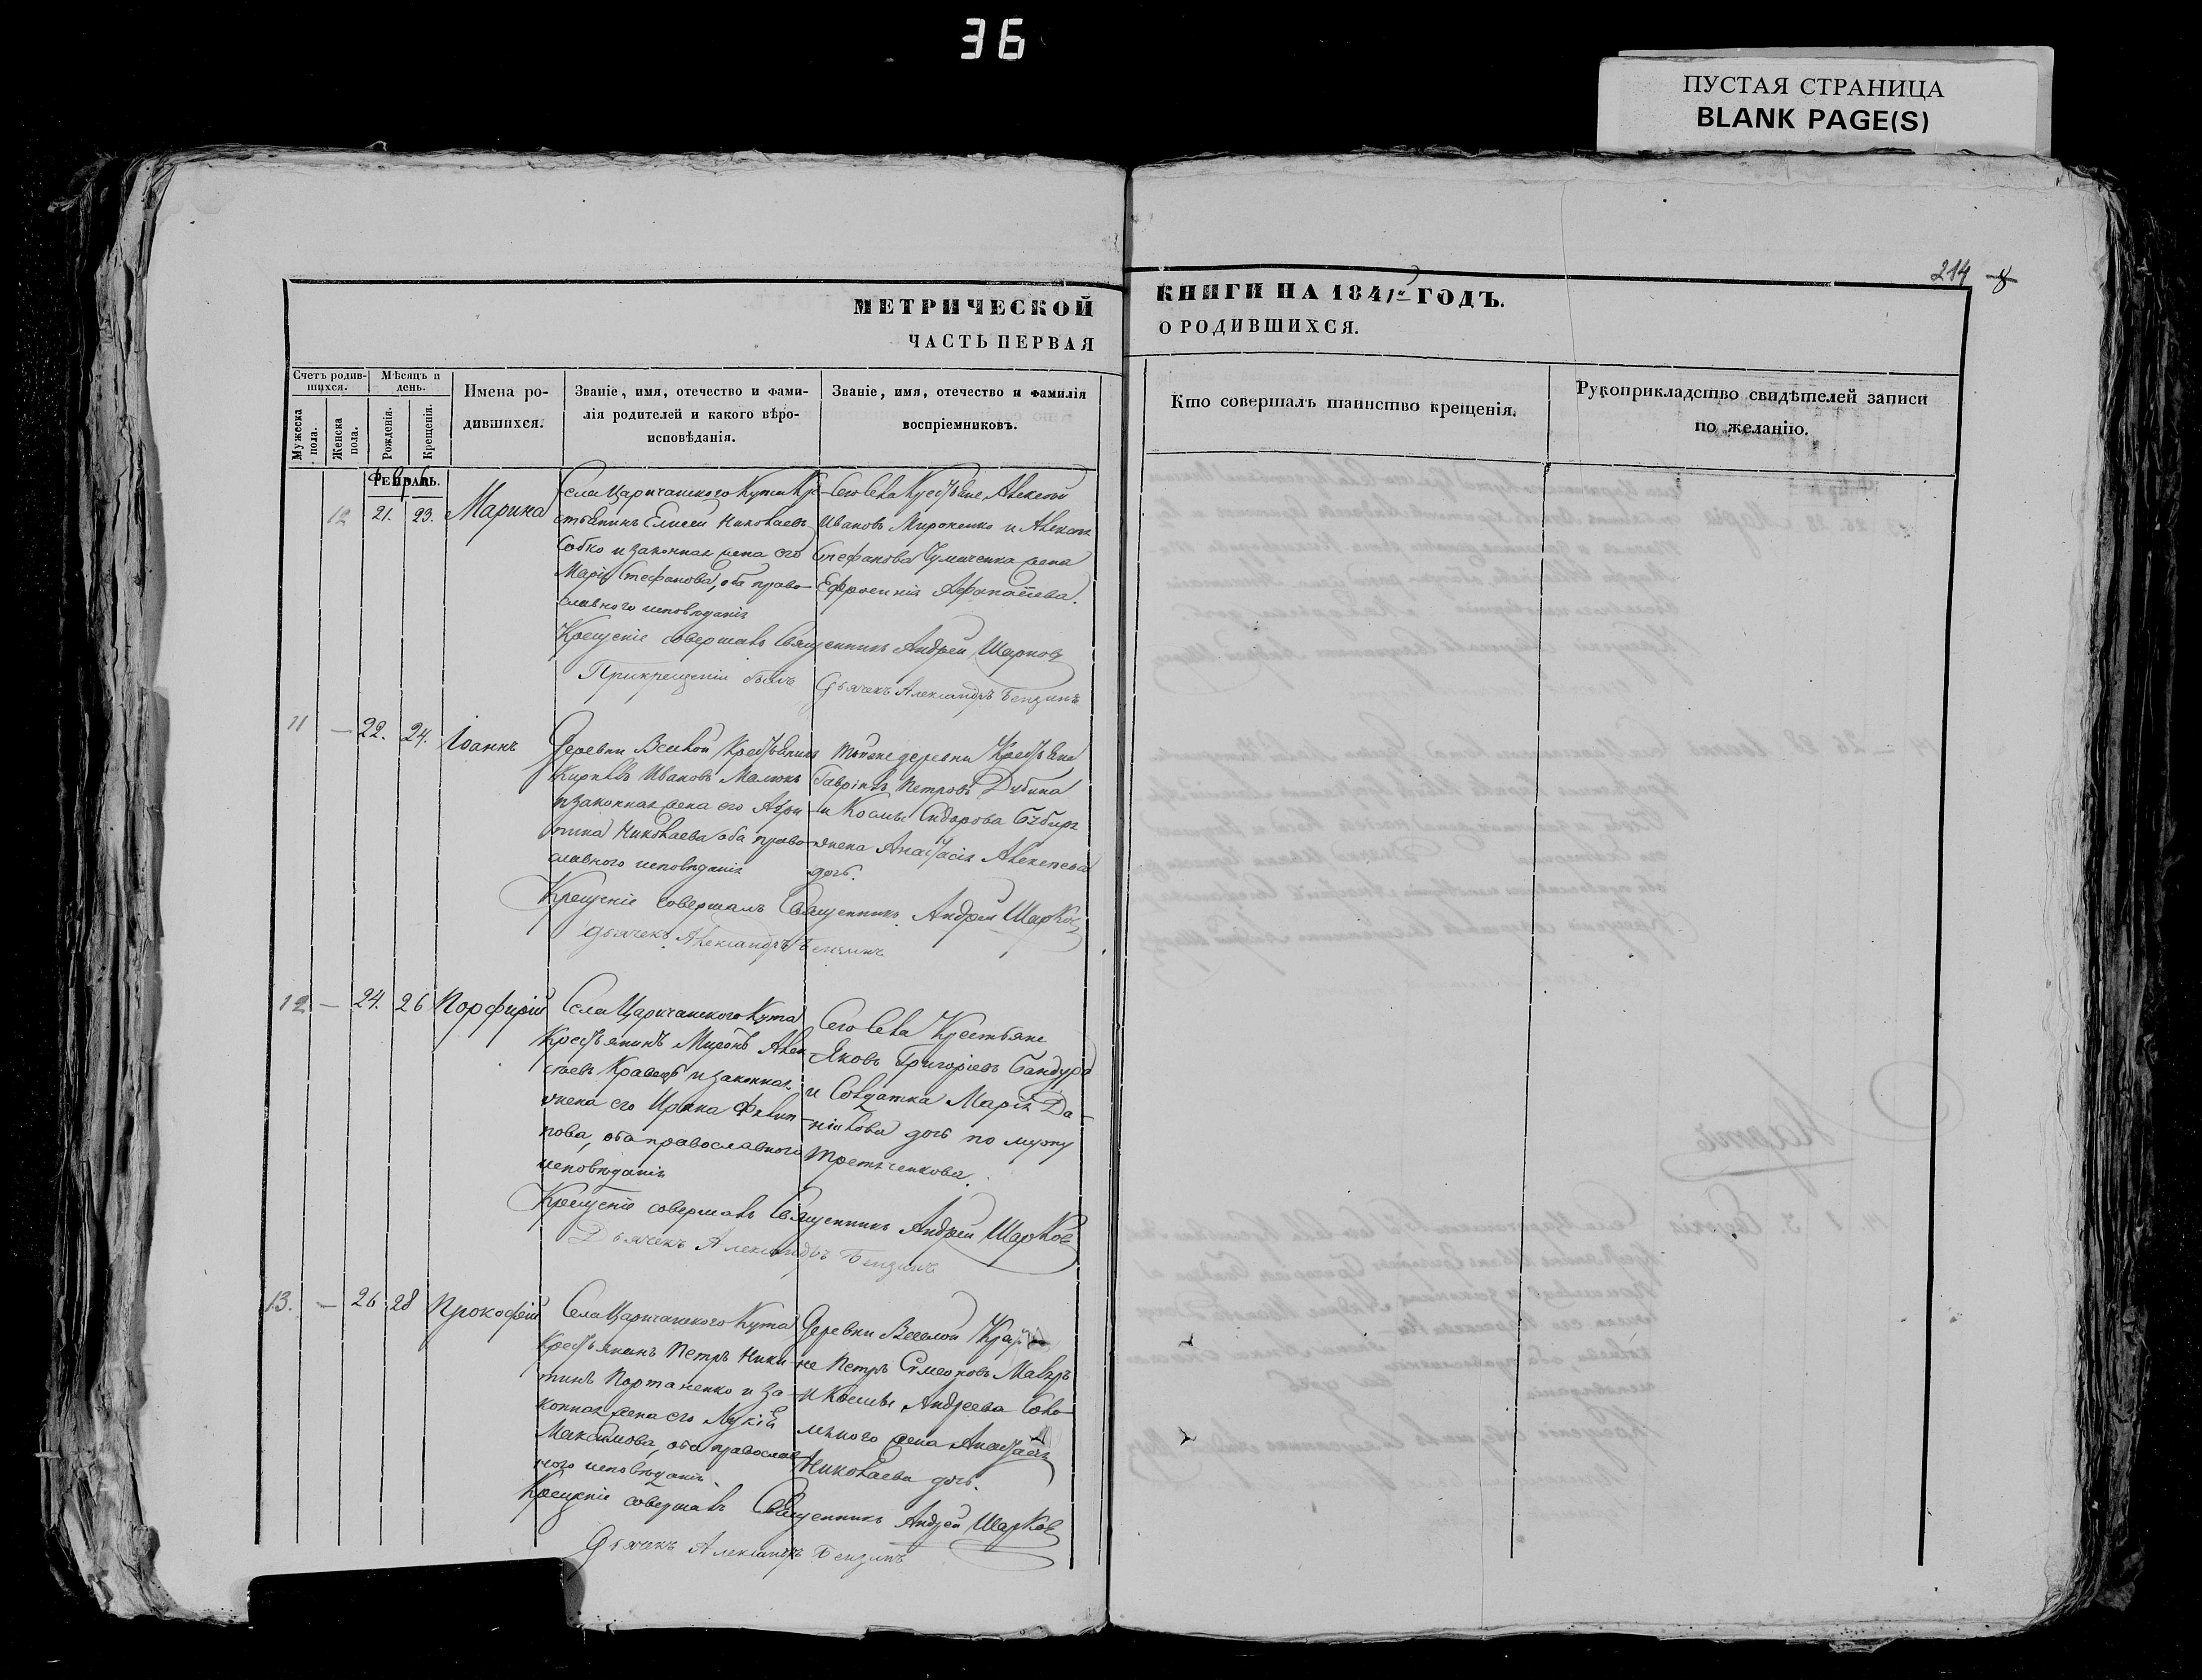 36
ПУСТАЯ СТРАНИЦА
BLANK PAGE(S)
214
МЕТРИЧЕСКОЙ
ЧАСТЬ ПЕРВАЯ
КНИГИ НА 1841й ГОДЪ.
О РОДИВШИХСЯ.
Счетъ родившихся.
Мѣсяцъ и день.
Мужеска пола.
Женска пола.
Рожденія.
Крещенія.
Имена родившихся.
Званіе, имя, отечество и фами-
лія родителей и какого вѣро-
исповѣданія.
Званіе, имя, отечество и фамилія
воспріемниковъ.
Кто совершалъ таинство крещенія.
Рукоприкладство свидѣтелей записи
по желанію.
Февраль.
12 21. 23. Марина
Села Царичанского Кута Кре-
стьянинъ Елисей Николаевъ
Собко и законная жена его
Марія Стефанова, оба право-
славного исповѣданія
Сего села Крестьяне Алексей
Ивановъ Мироненко и
Стефанова жена
Ефросинія
Крещеніе совершалъ Священникъ Андрей Шарковъ
При крещеніи былъ Дьячекъ Александръ Бензинъ
11 — 22. 24. Іоаннъ
Деревни Веселой Крестьянинъ
Кирилъ Ивановъ Малюкъ
и законная жена его Агри-
пина Николаева оба право-
славного исповѣданія
Той же деревни Крестьяне
Гавріилъ Петровъ Дубина
и Космы Сидорова
жена Анастасія Алексеева
дочь.
Крещеніе совершалъ Священникъ Андрей Шарковъ
Дьячекъ Александръ Бензинъ
12 — 24. 26 Порфирій
Села Царичанского Кута
Крестьянинъ Миронъ Алек-
сеевъ Кравецъ и законная
жена его Ирина Филип-
пова, оба православного
исповѣданія
Сего села Крестьяне
Яковъ Григоріевъ Бандура
и Солдатка Марія Да-
ніилова дочь по мужу
Третяченкова.
Крещеніе совершалъ Священникъ Андрей Шарковъ
Дьячекъ Александръ Бензинъ
13. — 26 28 Прокофій
Села Царичанского Кута
Крестьянинъ Петръ Ники-
тинъ Портаненко и за-
конная жена его Лукія
Максимова, оба православ
ного исповѣданія.
Деревни Веселой
не Петръ Симеоновъ
и Космы Андреева Соло-
мяного жена Анастасія
Николаева дочь.
Крещеніе совершалъ Священникъ Андрей Шарковъ
Дьячекъ Александръ Бензинъ